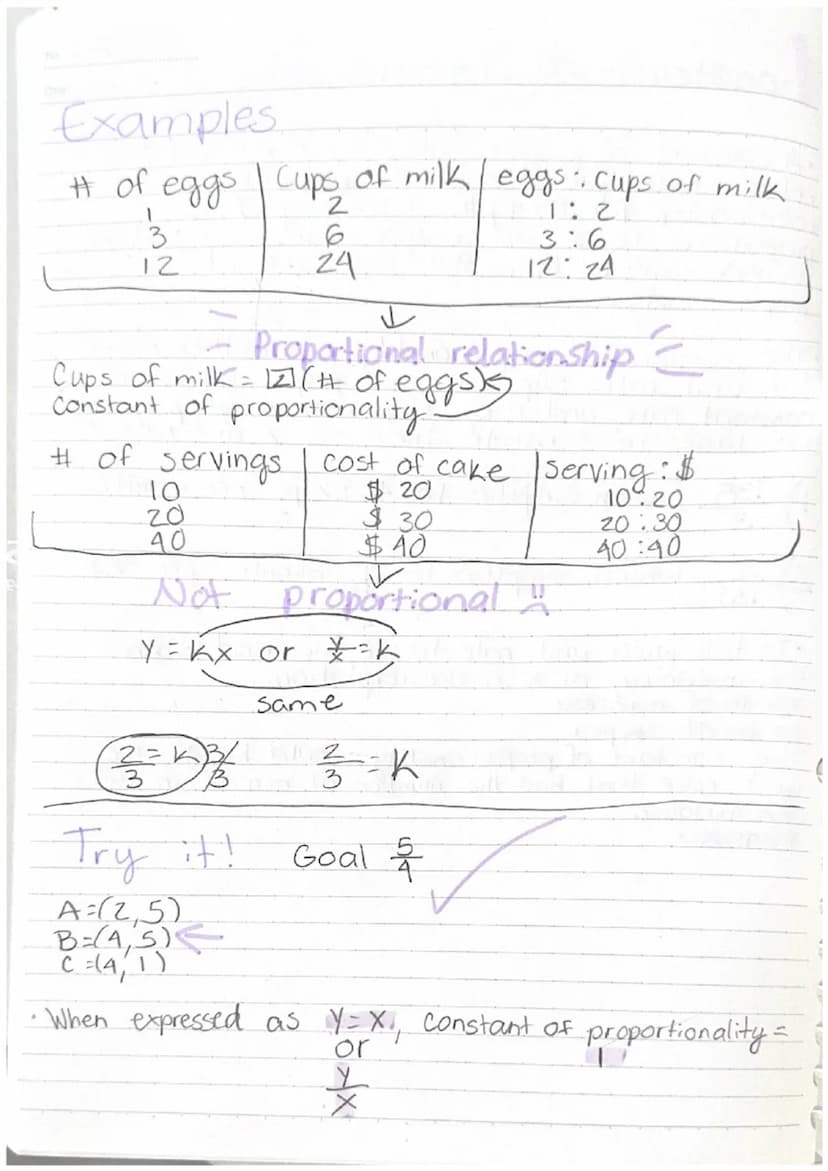 Examples
# of eggs | Cups of milk | eggs : cups of milk
1 | 2 | 1 : 2
3 | 6 | 3 : 6
12 | 24 | 12 : 24
↓
Proportional relationship
Cups of milk = 2 (# of eggs)
Constant of proportionality
# of servings | cost of cake | serving : $
10 | $ 20 | 10 : 20
20 | $ 30 | 20 : 30
40 | $ 40 | 40 : 40
↓
Not proportional
y = kx or y/x = k
same
2/3 = k 3/3 2/3 = k
Try it! Goal 5/4
A = (2,5)
B = (4,5) ←
C = (4, 1)
• When expressed as y = x, constant of proportionality =
or 1
y/x